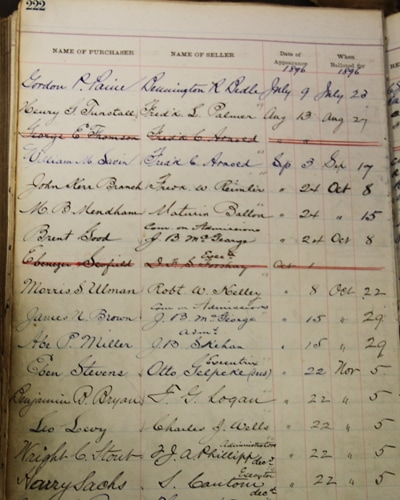 222
NAME OF PURCHASER NAME OF SELLER Date of Appearance 1896 When Balloted for 1896
Gordon P. Paine Remington R. Pedle July 9 July 23
Henry S Tunstall Fred'k L. Palmer Aug 13 Aug 27
George E Thomson Fred'k C Atwood "
William M. Fred'k C. Atwood Sep 3 Sep 17
John Kerr Branch Fred'k W " 24 Oct 8
M. B. Mendham Maturin Ballou " 24 " 15
Com on Admissions
Brent Good J. B. McGeorge " 24 Oct 8
Exec'r
Ebenezer Scofield Oct 1
Morris S. Ulman Robt W. Kelley " 8 Oct 22
Com on Admissions
James N. Brown J. B. McGeorge " 15 " 29
Adm'r
Abe P. Miller J. B. Skehan " 15 " 29
Executrix
Eben Stevens Otto Gelpcke (dec'd) " 22 Nov 5
Benjamin B. Bryan F. G. Logan " 22 " 5
Leo Levy Charles J. Wells " 22 " 5
Administratrix
Wright C. Stout F. J. A. Phillipp dec'd " 22 " 5
Executor
Harry Sachs S. Cantoni dec'd " 22 " 5